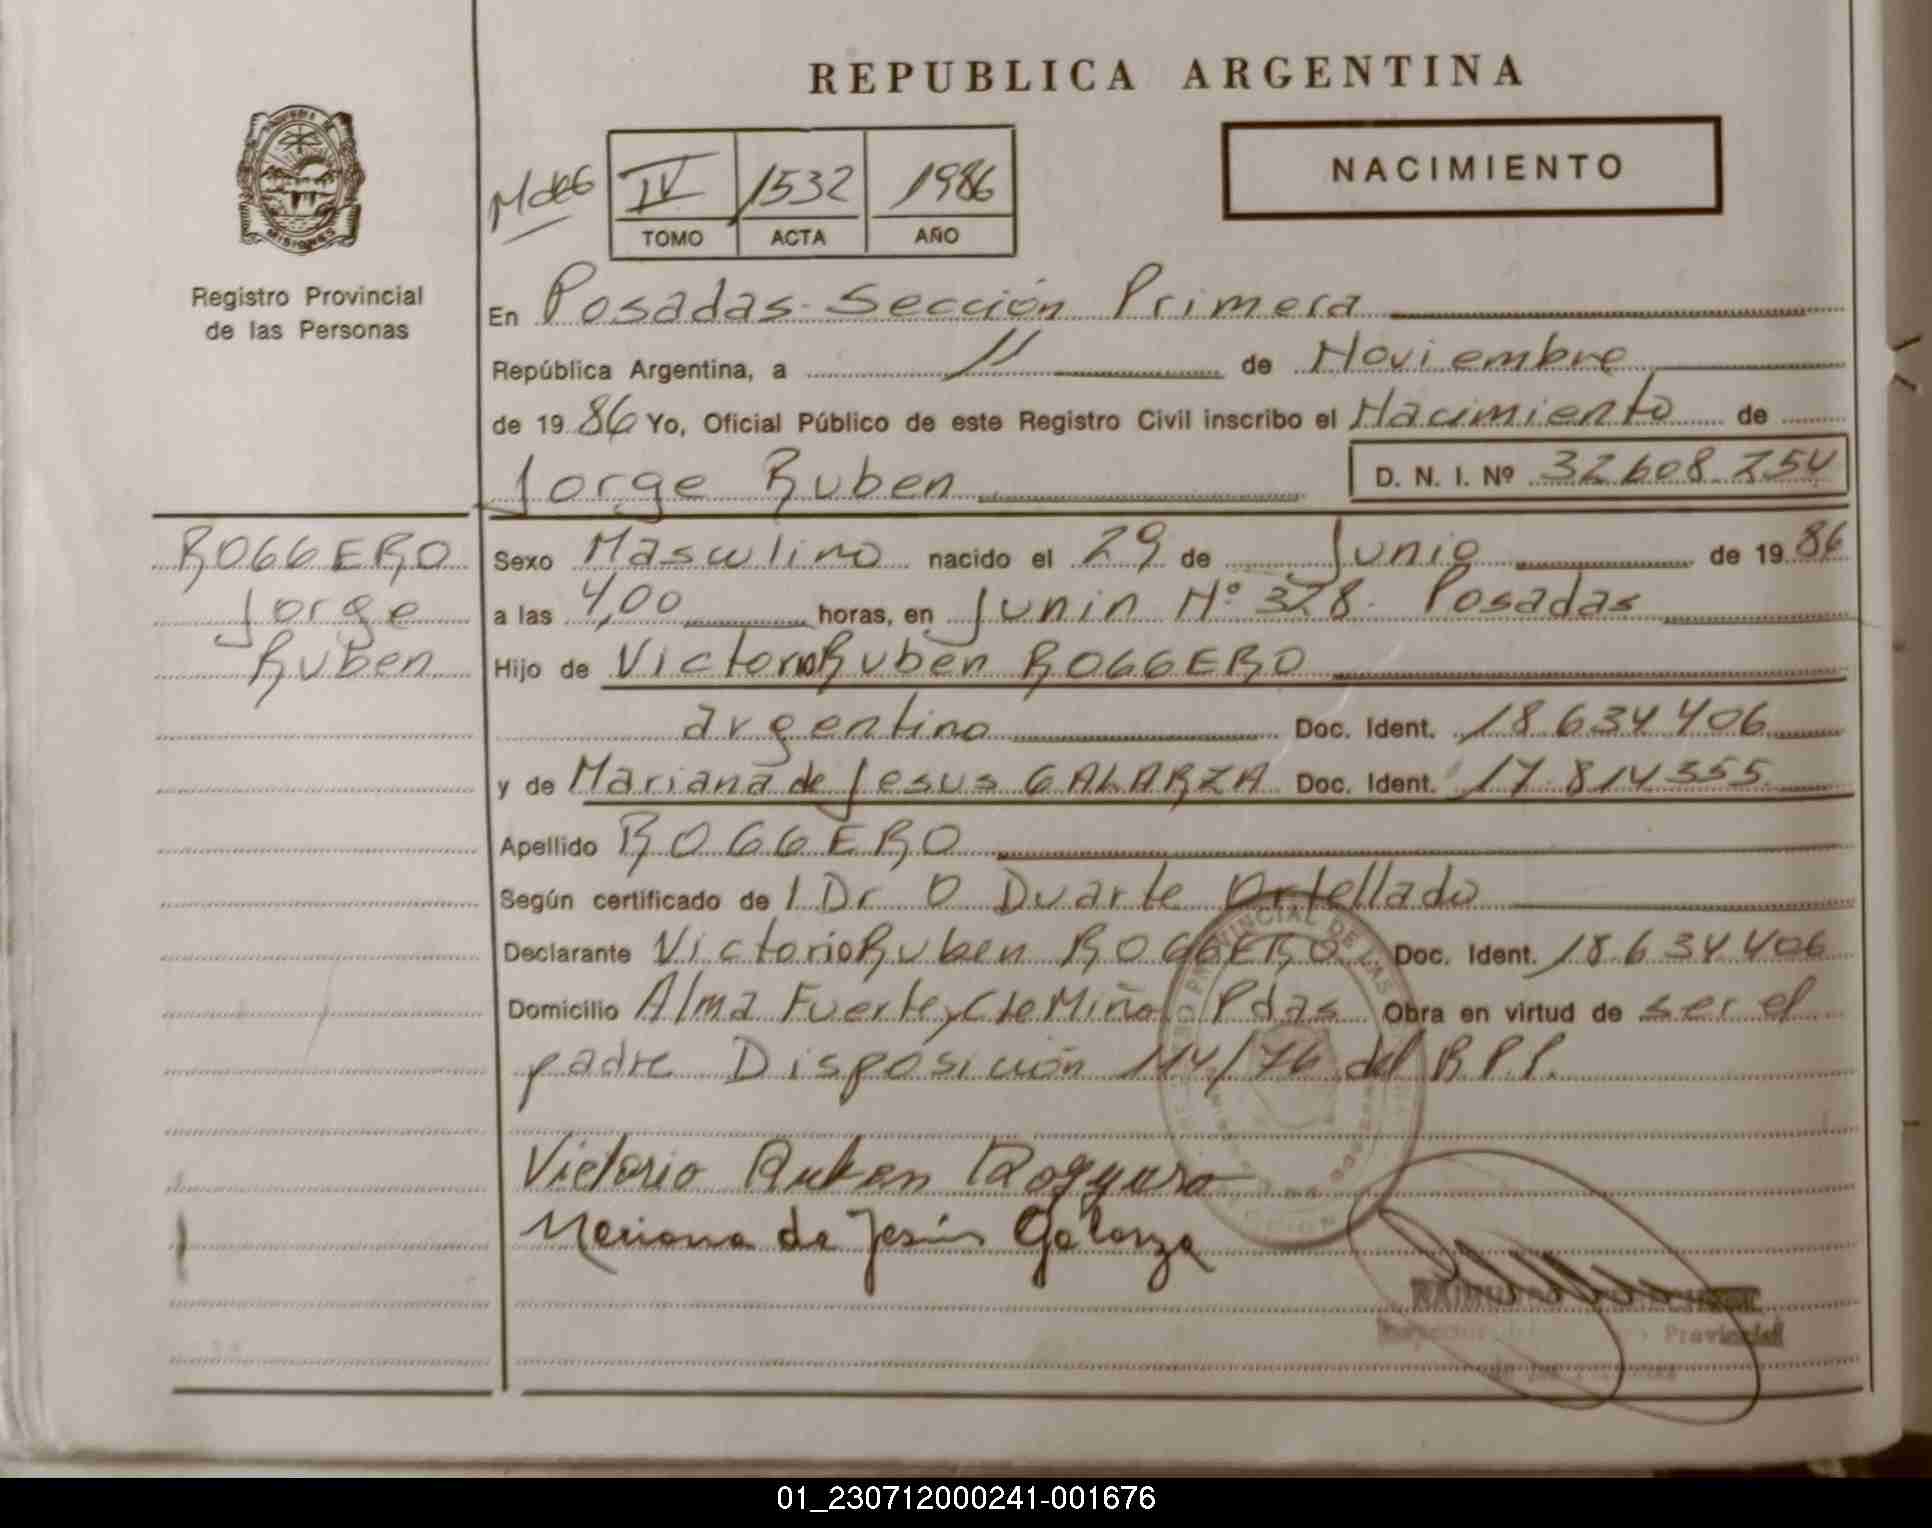 REPUBLICA ARGENTINA
NACIMIENTO
MISIONES
Registro Provincial
de las Personas
MdeG
IV 1532 1986
TOMO ACTA AÑO
En Posadas - Sección Primera
República Argentina, a 11 de Noviembre
de 1986 Yo, Oficial Público de este Registro Civil inscribo el Nacimiento de
Jorge Ruben D. N. I. Nº 32.608.254
ROGGERO
Jorge
Ruben
Sexo Masculino nacido el 29 de Junio de 1986
a las 4,00 horas, en Junin Nº 328. Posadas
Hijo de Victorio Ruben ROGGERO
argentino Doc. Ident. 18.634.406
y de Mariana de Jesus GALARZA Doc. Ident. 17.814.355
Apellido ROGGERO
Según certificado de l Dr O Duarte Ortellado
Declarante Victorio Ruben ROGGERO Doc. Ident. 18.634.406
Domicilio Alma Fuerte y Cte Miño Pdas Obra en virtud de ser el
padre Disposición 114/76 del R.P.P.
Victorio Ruben Roggero
Mariana de Jesús Galarza
Provincial
01_230712000241-001676